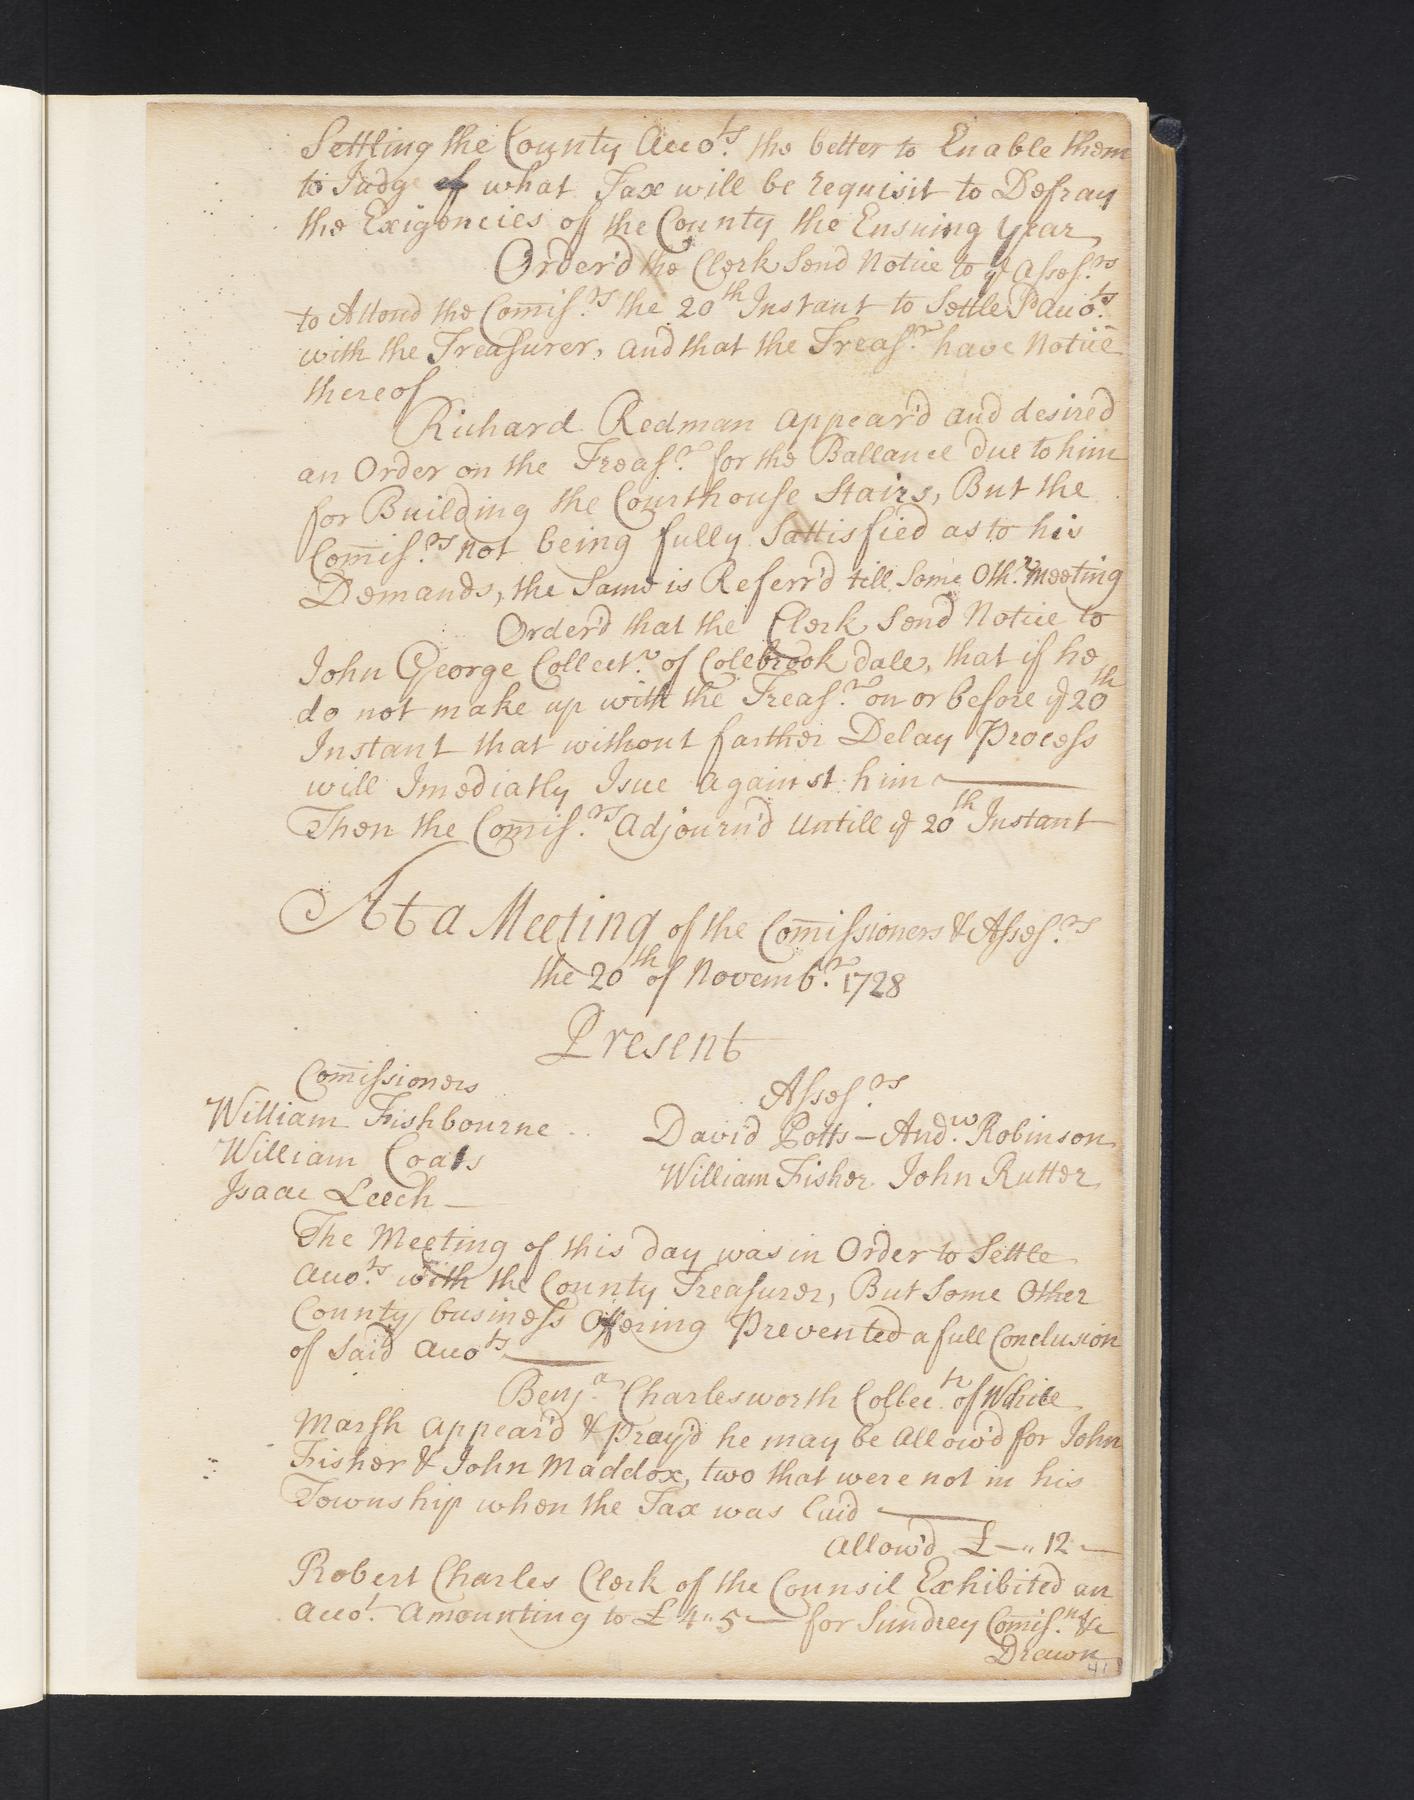 Settling the County Acco.ts the better to Enable them
to Judge of what Tax will be requisit to Defray
the Exigencies of the County the Ensuing year
Order'd the Clerk Send Notice to ye Asses.rs
to Attend the Comis.rs the 20th Instant to Settle Sd acco.ts
with the Treasurer, and that the Treas.r have Notice
thereof
Richard Redman appear'd and desired
an Order on the Treas.r for the Ballance due to him
for Building the Courthouse Stairs, But the
Comis.rs not being fully Sattisfied as to his
Demands, the Same is Referr'd till Some Oth.r Meeting
Order'd that the Clerk Send Notice to
John George Collect.r of Colebrook dale, that if he
do not make up with the Treas.r on or before ye 20th
Instant that without farther Delay Process
will Imediatly Isue against him
Then the Comis.rs Adjourn'd Untill ye 20th Instant
At a Meeting of the Comissioners & Asses.rs
the 20th of Novemb.r 1728
Present
Comissioners
Asses.rs
William Fishbourne
David Potts - And.w Robinson
William Coats
William Fisher John Rutter
Isaac Leech
The Meeting of this day was in Order to Settle
acco.ts with the County Treasurer, But Some Other
County business Offering Prevented a full Conclusion
of Said acco.ts
Benj.a Charlesworth Collec.tr of White
Marsh appear'd & pray'd he may be allow'd for John
Fisher & John Maddox, two that were not in his
Township when the Tax was laid
allow'd £ - " 12 -
Robert Charles Clerk of the Counsil Exhibited an
acco.t amounting to £ 4 " 5 - for Sundrey Comis.ns &c
Drawn
41